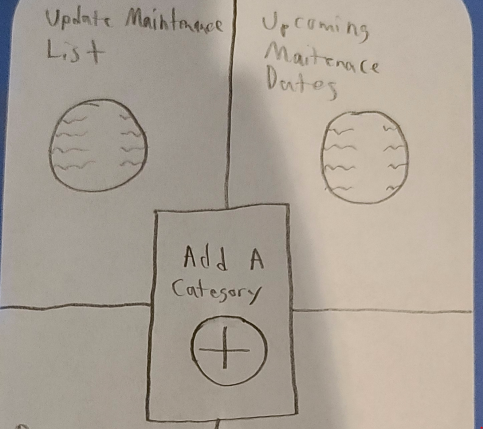 Update Maintnance
List
Upcoming
Maitenace
Dates
Add A
Category